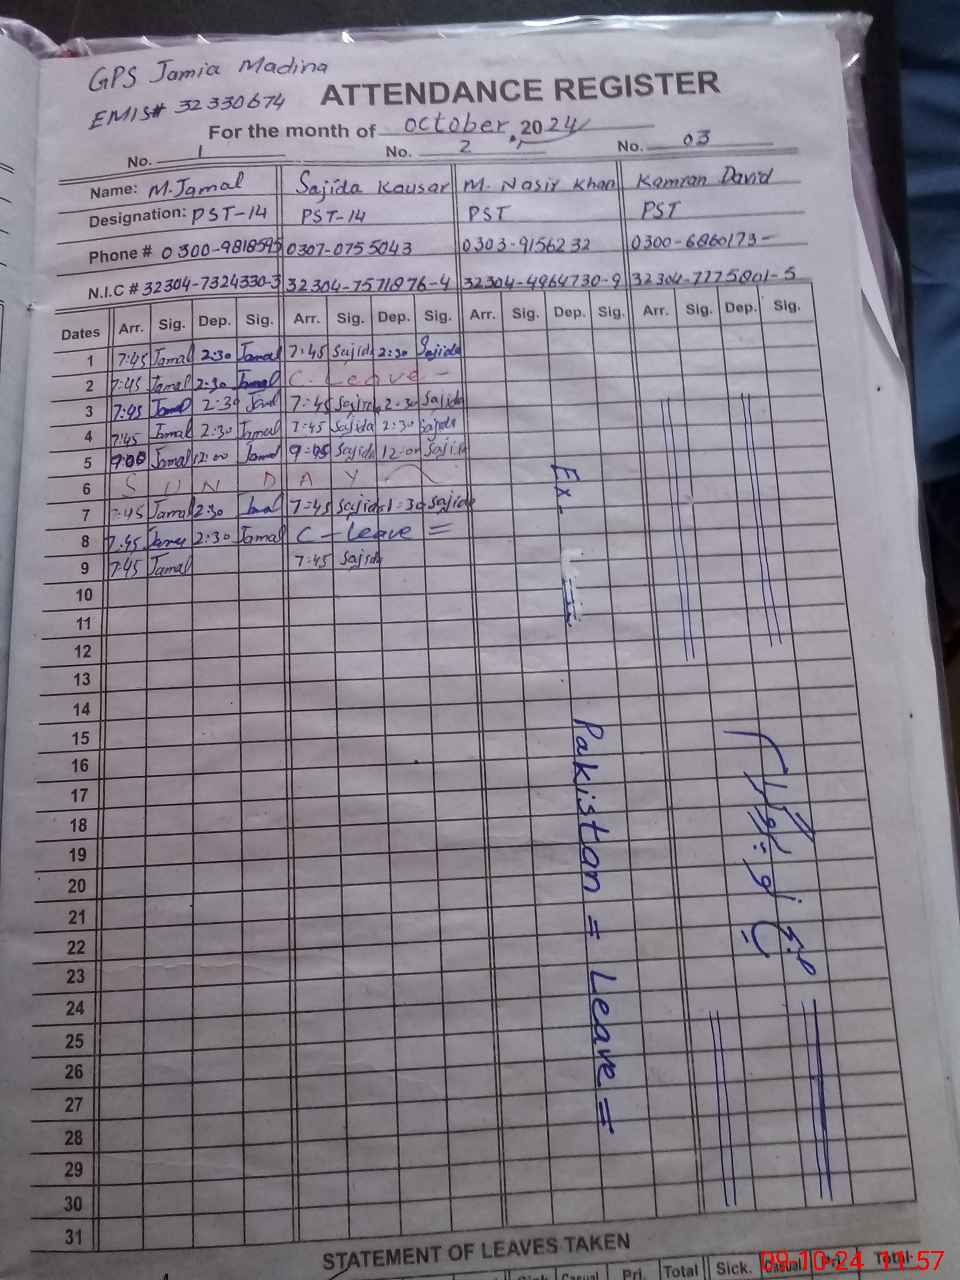 GPS Jamia Madina
EMIS# 32330674
ATTENDANCE REGISTER
For the month of october, 2024
No. 1 No. 2 No. 03
Name: M. Jamal Sajida Kausar M. Nasir Khan Kamran David
Designation: PST-14 PST-14 PST PST
Phone # 0300-9818595 0307-0755043 0303-9156232 0300-6860173-
N.I.C # 32304-7324330-3 32304-7571876-4 32304-4964730-9 32304-7175801-5
Dates Arr. Sig. Dep. Sig. Arr. Sig. Dep. Sig. Arr. Sig. Dep. Sig. Arr. Sig. Dep. Sig.
1 7:45 Jamal 2:30 Jamal 7:45 Sajida 2:30 Sajida
2 7:45 Jamal 2:30 Jamal C. Leave -
3 7:45 Jamal 2:30 Jamal 7:45 Sajida 2:30 Sajida
4 7:45 Jamal 2:30 Jamal 7:45 Sajida 2:30 Sajida
5 9:00 Jamal 12:00 Jamal 9:00 Sajida 12:00 Sajida
6 S U N D A Y
7 7:45 Jamal 2:30 Jamal 7:45 Sajida 1:30 Sajida
8 7:45 Jamal 2:30 Jamal C-Leave =
9 7:45 Jamal 7:45 Sajida
10
11
12
13
14
15
16
17
18
19
20
21
22
23
24
25
26
27
28
29
30
31
Ex-
Pakistan = Leave =
STATEMENT OF LEAVES TAKEN
Sick Casual Pri. Total Sick. Casual Pri. Total
09-10-24 11:57